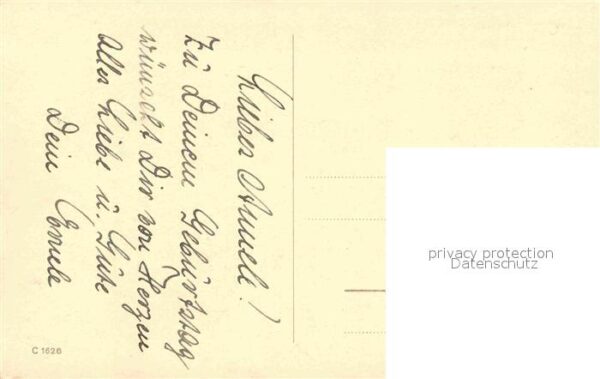 Liebes Anneli!
Zu Deinem Geburtstag
wünscht Dir von Herzen
alles Liebe u. Gute
Dein
C 1626
privacy protection
Datenschutz